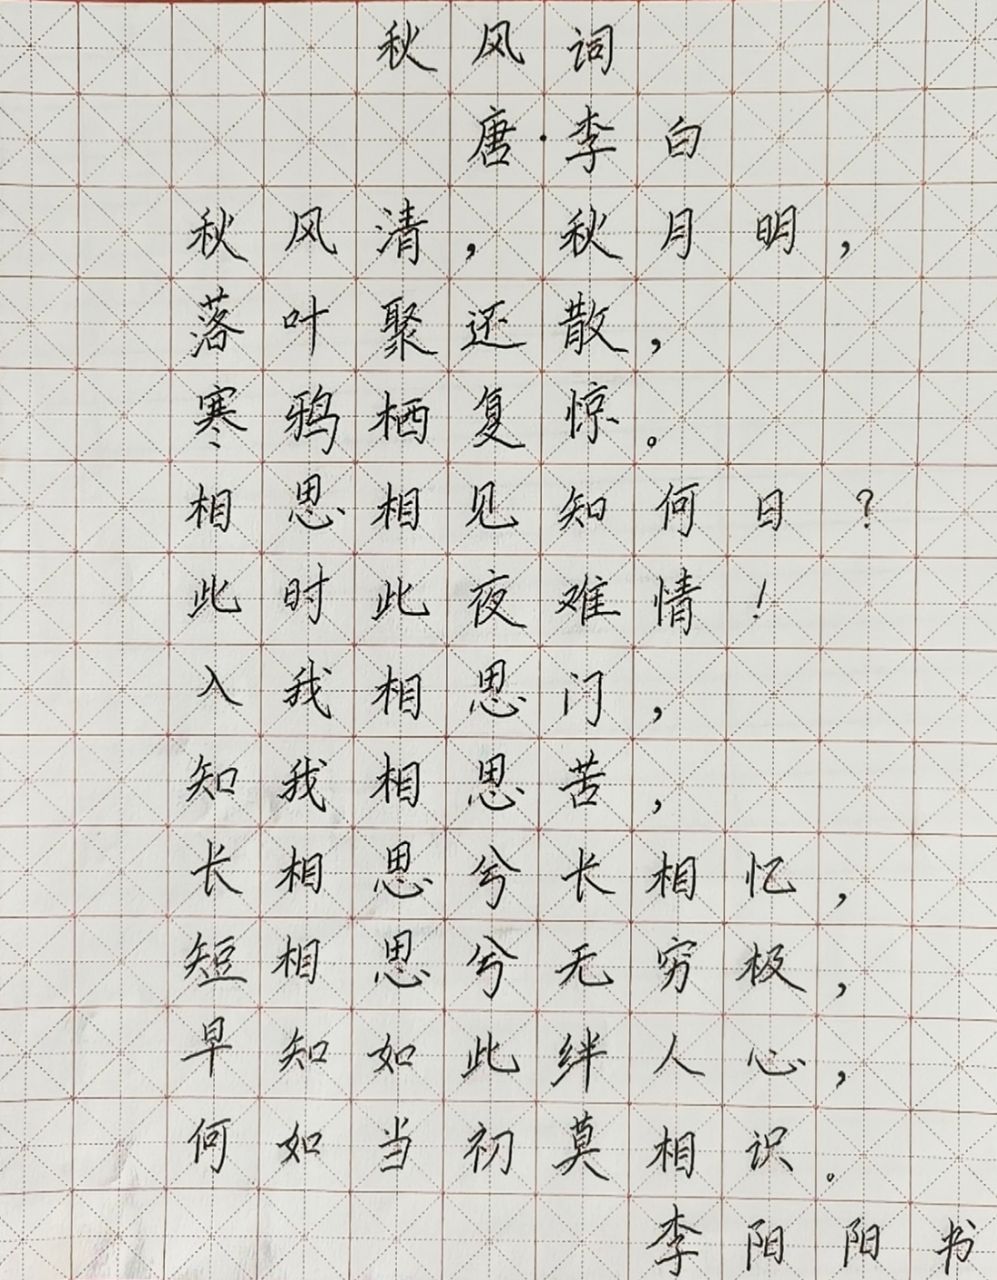 秋风词
唐·李白
秋风清，秋月明，
落叶聚还散，
寒鸦栖复惊。
相思相见知何日？
此时此夜难情！
入我相思门，
知我相思苦，
长相思兮长相忆，
短相思兮无穷极，
早知如此绊人心，
何如当初莫相识。
李阳阳书